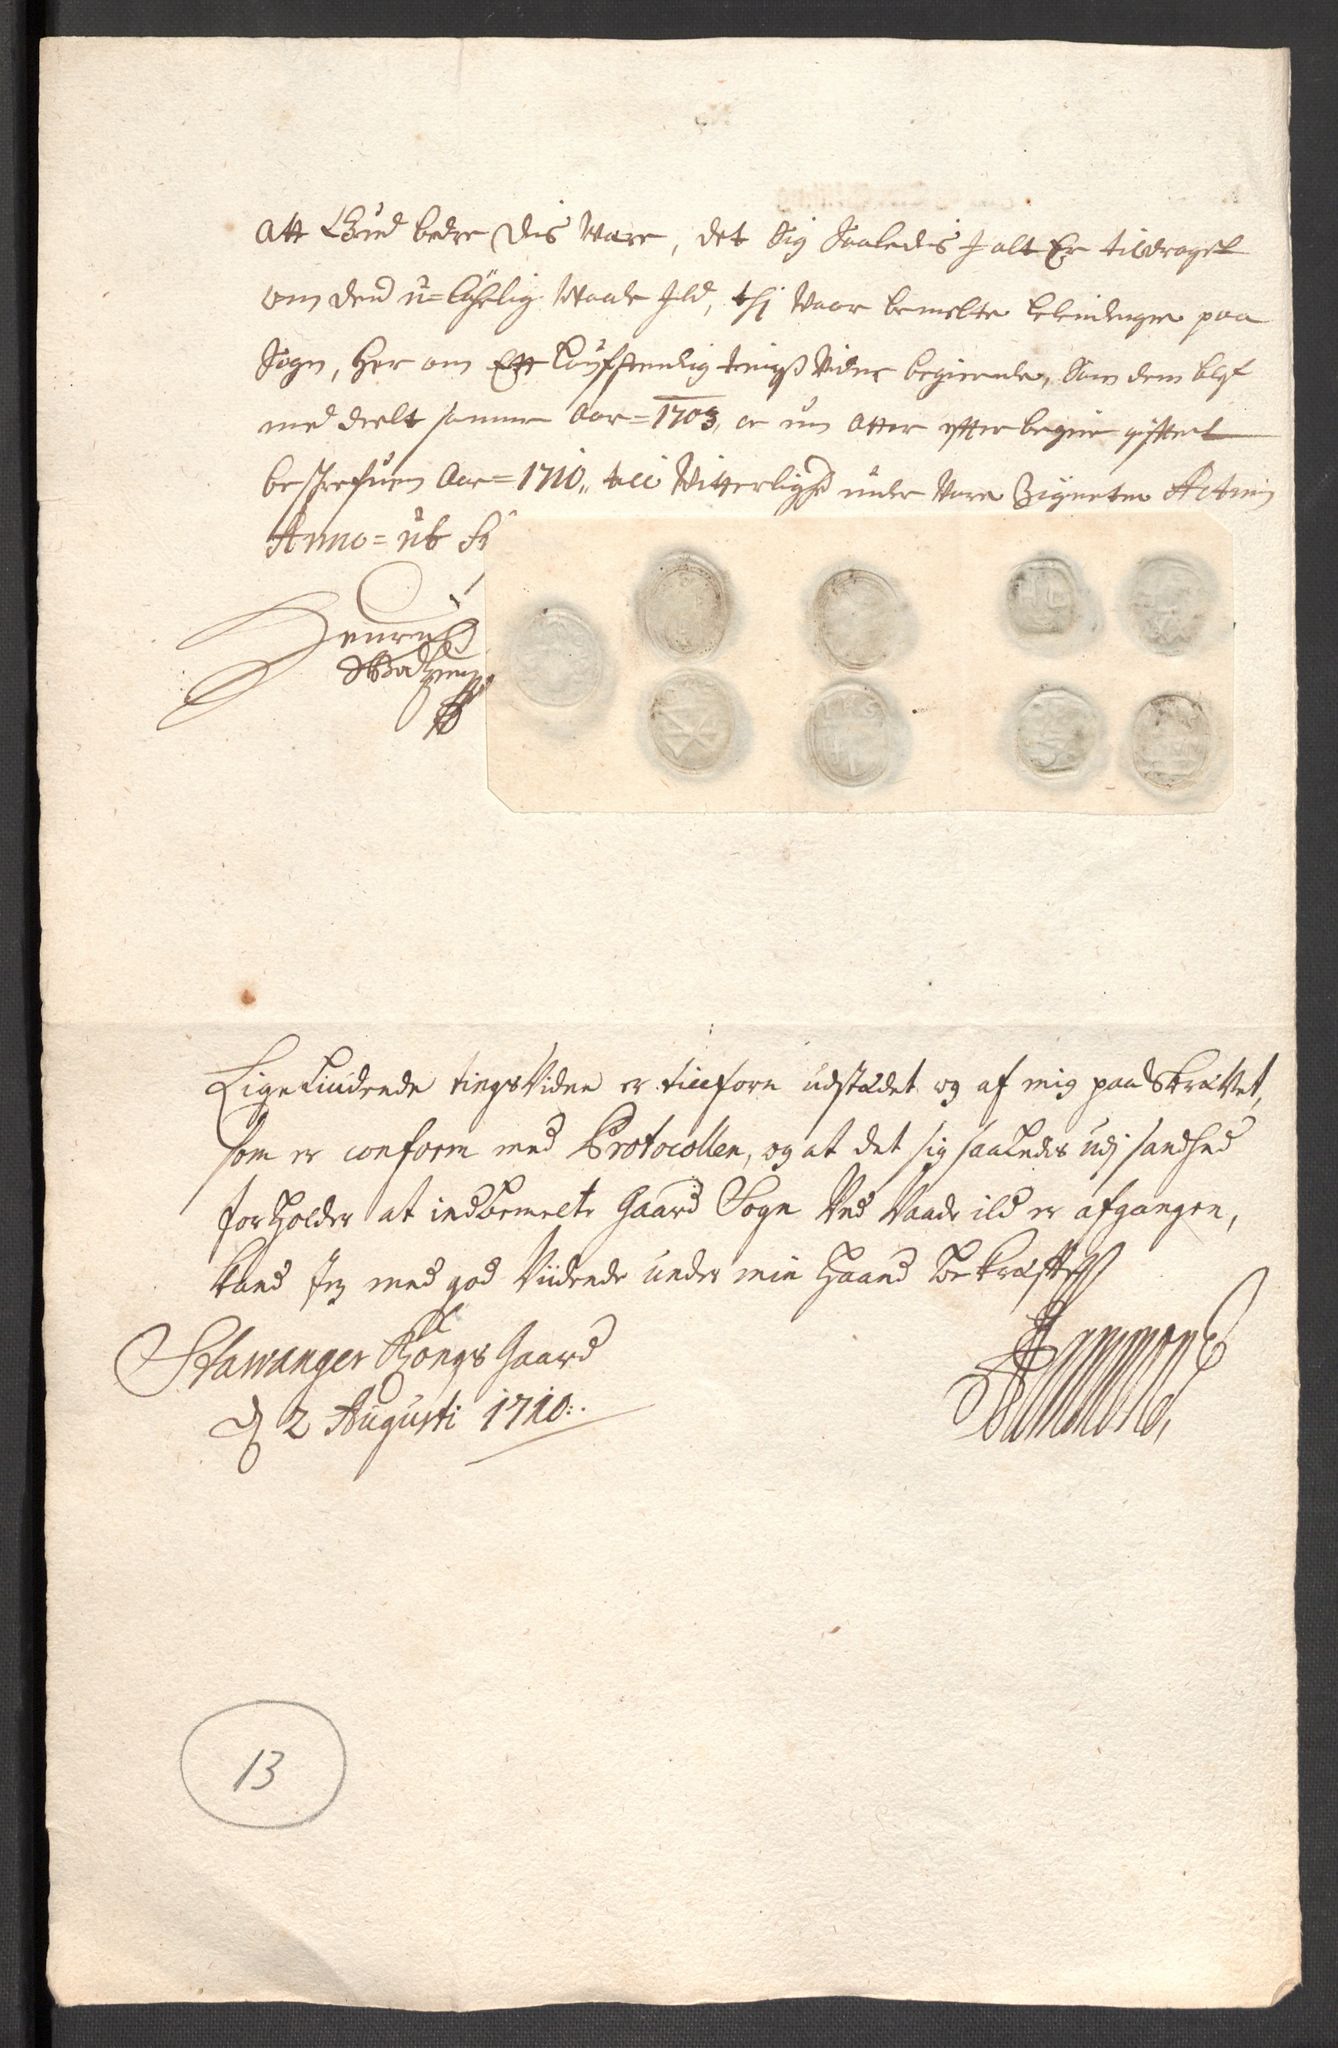 Att Gud bedre dis Ware, det Sig Saaledis J alt Er tildraget
om dend u=lychelig Waade Jld, thj Waar bemelte paa
Sogn, Her om Ett Louffsendig tings Vidne begierende, Som dem blef
med deelt samme Aar=1703, er nu Atter effter begier
beschrefuen Aar=1710,, till Witterlighd under Vore Zigneter Actum
Anno= ut
Henrich
Lige Liudende tings Vidne er tilforn udstædet og af mig paaSkrævet,
som er conform med Protocollen, og at det sig saaledes udj sandhed
forholder at indbemelte Gaard Sogn Ved Vaade ild er afgangen,
kand Jeg med god Viidende under min Haand bekræffte
Stawanger Kongs Gaard
d 2 Augusti 1710.
13